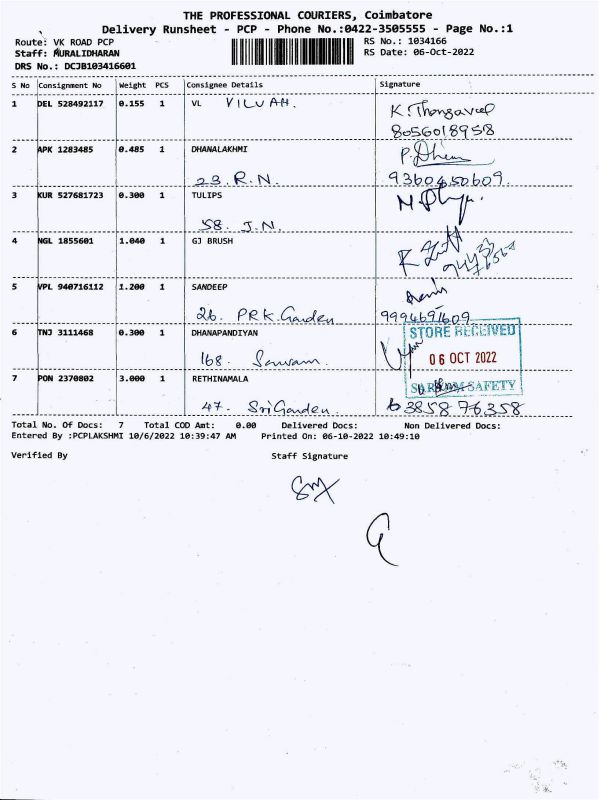 THE PROFESSIONAL COURIERS, Coimbatore
Delivery Runsheet - PCP - Phone No.:0422-3505555 - Page No.:1
Route: VK ROAD PCP
RS No.: 1034166
Staff: MURALIDHARAN
RS Date: 06-Oct-2022
DRS No.: DCJB103416601
S No Consignment No Weight PCS Consignee Details Signature
1 DEL 528492117 0.155 1 VL VILVAH.
K. Thangavel
8056018958
2 APK 1283485 0.485 1 DHANALAKHMI
23. R.N. 9360450609.
3 KUR 527681723 0.300 1 TULIPS
58. J.N.
4 NGL 1855601 1.040 1 GJ BRUSH
5 VPL 940716112 1.200 1 SANDEEP
26. PRK.Garden 9994691609
6 TNJ 3111468 0.300 1 DHANAPANDIYAN
STORE RECEIVED
06 OCT 2022
168.
7 PON 2370802 3.000 1 RETHINAMALA
SAFETY
47. Sri Garden. 63858 76358
Total No. Of Docs: 7 Total COD Amt: 0.00 Delivered Docs: Non Delivered Docs:
Entered By :PCPLAKSHMI 10/6/2022 10:39:47 AM Printed On: 06-10-2022 10:49:10
Verified By Staff Signature